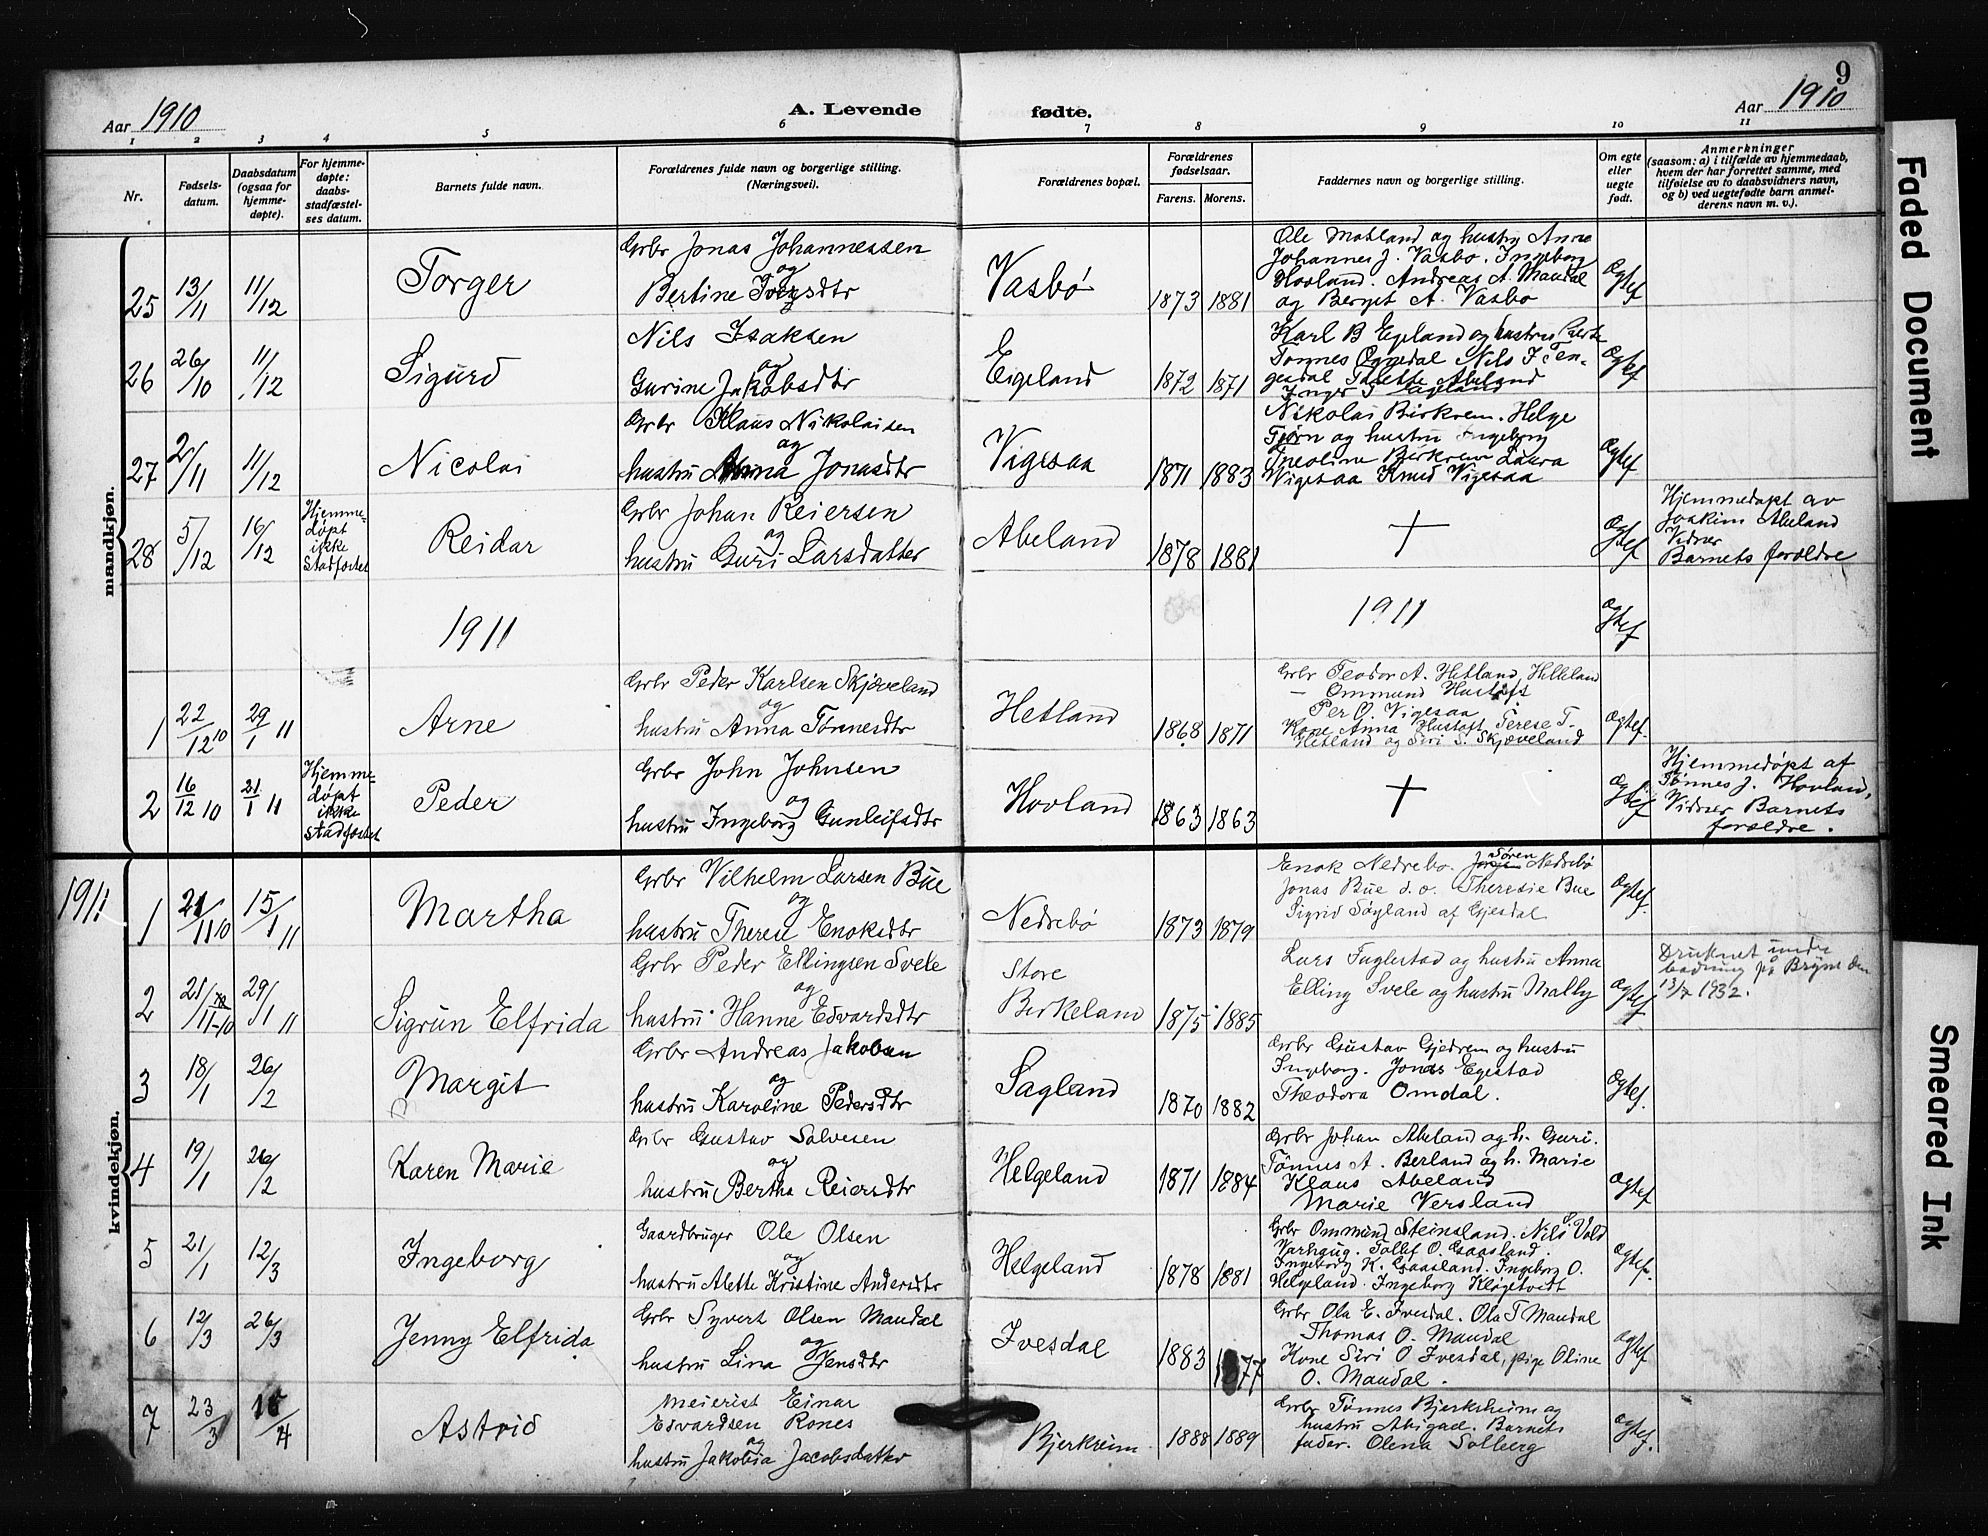 9
Aar 1910
A. Levende fødte.
Aar 1910
1 2 3 4 5 6 7 8 9 10 11
Nr.
Fødsels-
datum.
Daabsdatum
(ogsaa for
hjemme-
døpte).
For hjemme-
døpte:
daabs-
stadfæstel-
ses datum.
Barnets fulde navn.
Forældrenes fulde navn og borgerlige stilling.
(Næringsvei).
Forældrenes bopæl.
Forældrenes
fødselsaar.
Farens. Morens.
Faddernes navn og borgerlige stilling.
Om egte
eller
uegte
født.
Anmerkninger
(saasom: a) i tilfælde av hjemmedaab,
hvem der har forrettet samme, med
tilføielse av to daabsvidners navn,
og b) ved uegtefødte barn anmel-
derens navn m. v.).
mandkjøn.
25 13/11 11/12 Torger
Grbr Jonas Johannessen
og
Bertine Iversdtr
Vasbø 1873 1881
Ole Matland og hustru Anne
Johannes J. Vasbø. Ingeborg
Hovland. Andreas A. Maudal
og Bergit A. Vasbo
Ægtef
26 26/10 11/12 Sigurd
Nils Isaksen
og
Gurine Jakobsdtr
Eigeland 1872 1871
Karl B Egeland og hustru
Tønnes Ognedal Nils I Ten-
gesdal Thilette Abeland
Inger T Egeland
Ægtef
27 2/11 11/12 Nicolai
Grbr Klaus Nikolaisen
og
hustru Anna Jonasdtr
Vigesaa 1871 1883
Nikolai Birkrem. Helge
Tjørn og hustru Ingeborg
Teoline Bjerkrem Laura
Vigesaa Knud Vigesaa
Ægtef
28 5/12 16/12
Hjemme-
døpt
ikke
stadfæstet
Reidar
Grbr Johan Reiersen
og
hustru Guri Larsdatter
Abeland 1878 1881
†
Ægtef
Hjemmedøpt av
Joakim Abeland
Vidner
Barnets forældre
1911 1911 Ægtef
1 22/12 10 29/1 11 Arne
Grbr Peder Karlsen Skjæveland
og
hustru Anna Tønnesdtr
Hetland 1868 1871
Grbr Teodor A. Hetland, Helleland
— Ommund Hustoft
Per O. Vigesaa
Kone Anna Hustoft Terese T.
Hetland og Siri S. Skjæveland
Ægtef.
2 16/12 10 21/1 11
Hjemme-
døpt
ikke
stadfæstet
Peder
Grbr John Johnsen
og
hustru Ingeborg Gunleifsdtr
Hovland 1863 1863
†
Ægtef
Hjemmedøpt af
Tønnes J. Hovland,
Vidner Barnets
forældre.
kvindekjøn.
1911
1 21/11 10 15/1 11 Martha
Grbr Vilhelm Larsen Bue
og
hustru Therese Enoksdtr
Nedrebø 1873 1879
Enok Nedrebø. Søren Nedrebø
Jonas Bue d.o. Theresie Bue
Sigrid Søyland af Gjesdal
Ægtef.
2 21/11-10 29/1 11 Sigrun Elfrida
Grbr Peder Ellingsen Svele
og
hustru Hanne Edvardsdtr
Store
Birkeland 1875 1885
Lars Fuglestad og hustru Anna
Elling Svele og hustru Mally
Ægtef
Druknet under
badning på Bryne den
13/7 1932.
3 18/1 26/2 Margit
Grbr Andreas Jakobsen
og
hustru Karoline Pedersdtr
Sagland 1870 1882
Grbr Gustav Gjedrem og hustru
Ingeborg. Jonas Egestad
Theodora Omdal.
Ægtef.
4 19/1 26/2 Karen Marie
Grbr Gustav Salvesen
og
hustru Bertha Reiersdtr
Helgeland 1871 1884
Grbr Johan Abeland og h. Guri.
Tønnes A. Berland og h. Marie
Klaus Abeland
Marie Versland
Ægtef
5 21/1 12/3 Ingeborg
Gaardbruger Ole Olsen
og
hustru Alette Kristine Andersdtr
Helgeland 1878 1881
Grbr Ommund Steinsland. Nils S. Vold
Varhaug. Tollef O. Gaasland.
Ingeborg K. Gaasland. Ingeborg O.
Helgeland. Ingeborg Kløgetvedt
Ægtef.
6 12/3 26/3 Jenny Elfrida
Grbr Syvert Olsen Maudal
og
hustru Lina Jensdtr
Ivesdal 1883 1877
Grbr Ola E. Ivesdal. Ola T Maudal
Thomas O. Maudal
Kone Siri O Ivesdal, pige Oline
O. Maudal.
Ægtef
7 23/3 16/4 Astrid
Meierist Einar
Edvardsen Rones
og
hustru Jakobia Jacobsdatter
Bjerkreim 1888 1889
Grbr Tønnes Bjerkreheim og
hustru Abigael. Barnets
fader. Olena Solberg
Ægtef.
Faded Document
Smeared Ink